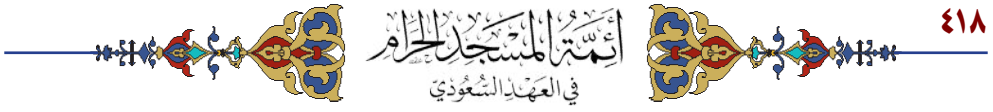 ٤١٨
أئمة المسجد الحرام
في العهد السعودي